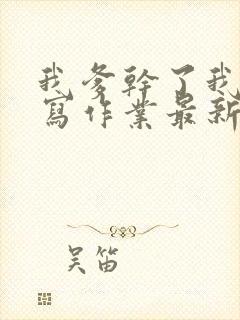 我爹幹了我
寫作業最新
吴笛